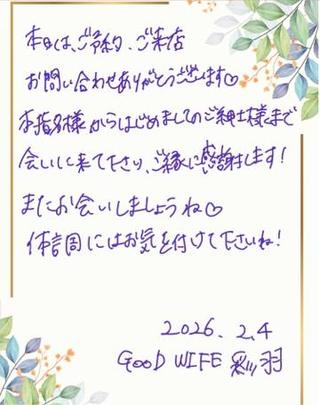 本日は、ご予約、ご来店
お問い合わせありがとうございます♡
本指名様からはじめましてのご紳士様まで
会いに来て下さり、ご縁に感謝します!
またお会いしましょうね♡
体調にはお気を付けて下さいね!
2026.2.4
GOOD WIFE 彩羽